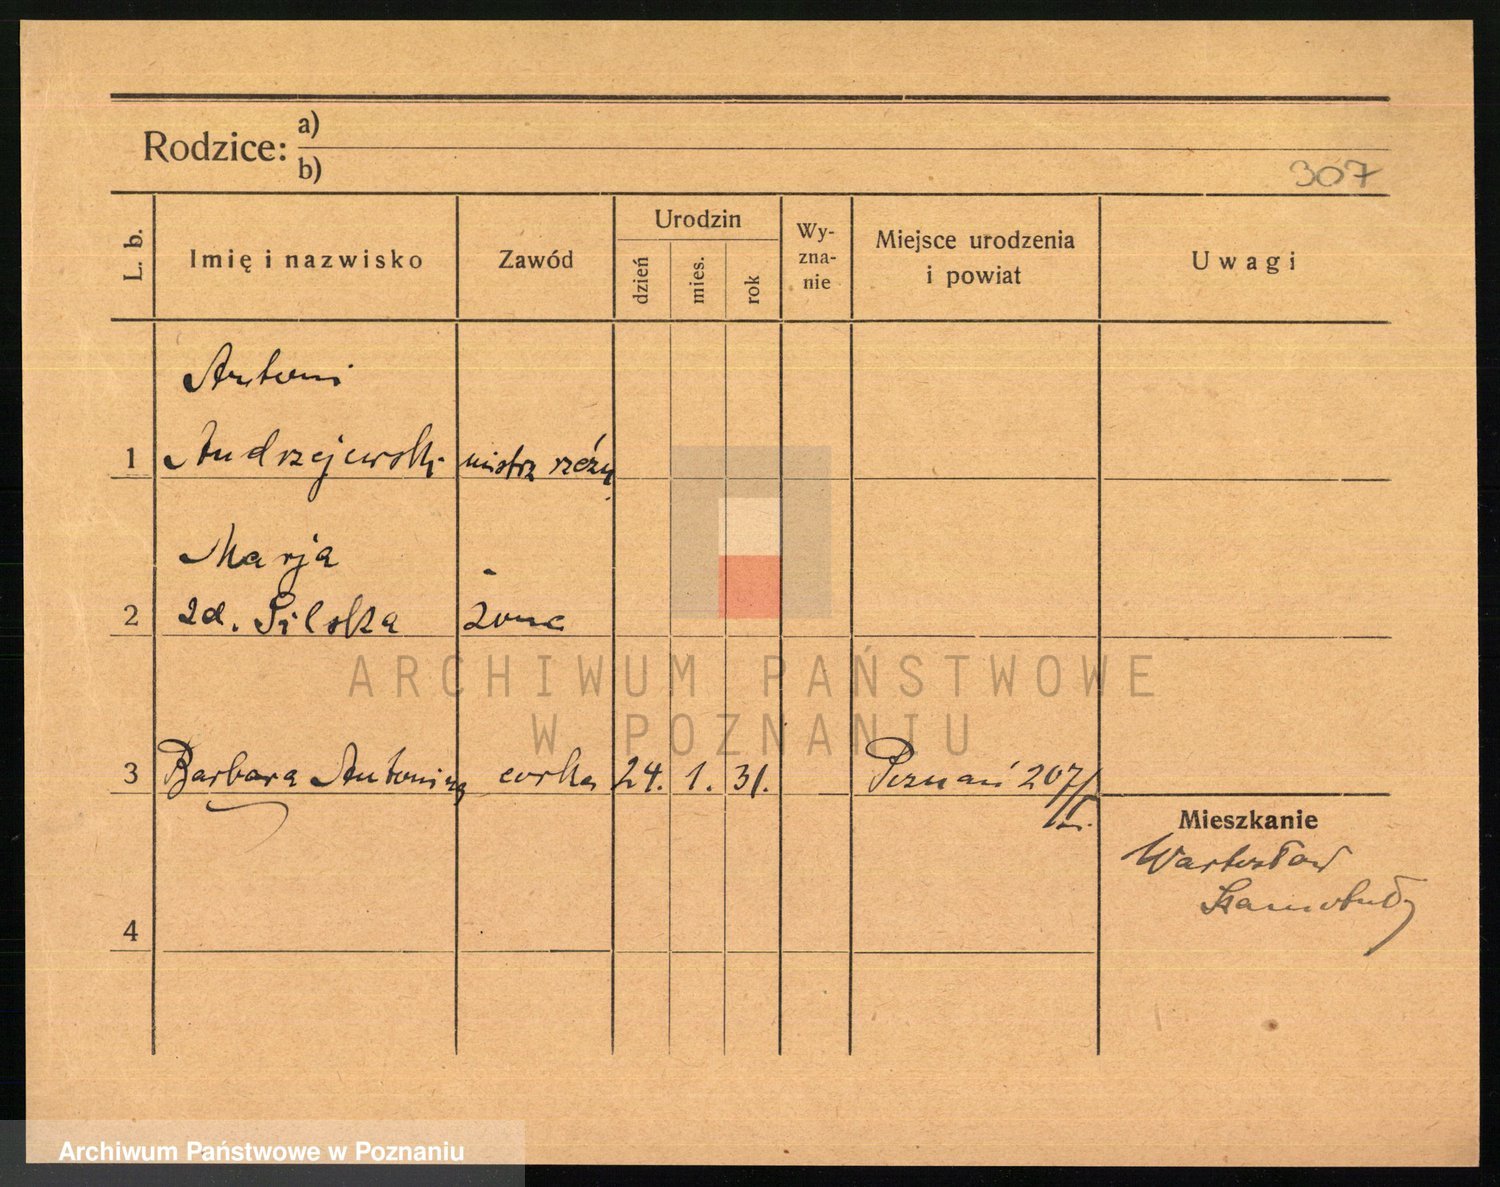 Rodzice: a)
b)
307
L. b.
Imię i nazwisko
Zawód
Urodzin
dzień
mies.
rok
Wy-
zna-
nie
Miejsce urodzenia
i powiat
Uwagi
Antoni
1 Andrzejewski mistrz rzeźn.
Marja
2 zd. Pilska żona
3 Barbara Antonina corka 24. 1. 31. Poznań 207/
Mieszkanie
Wartosław
Szamotuły
4
ARCHIWUM PAŃSTWOWE
W POZNANIU
Archiwum Państwowe w Poznaniu